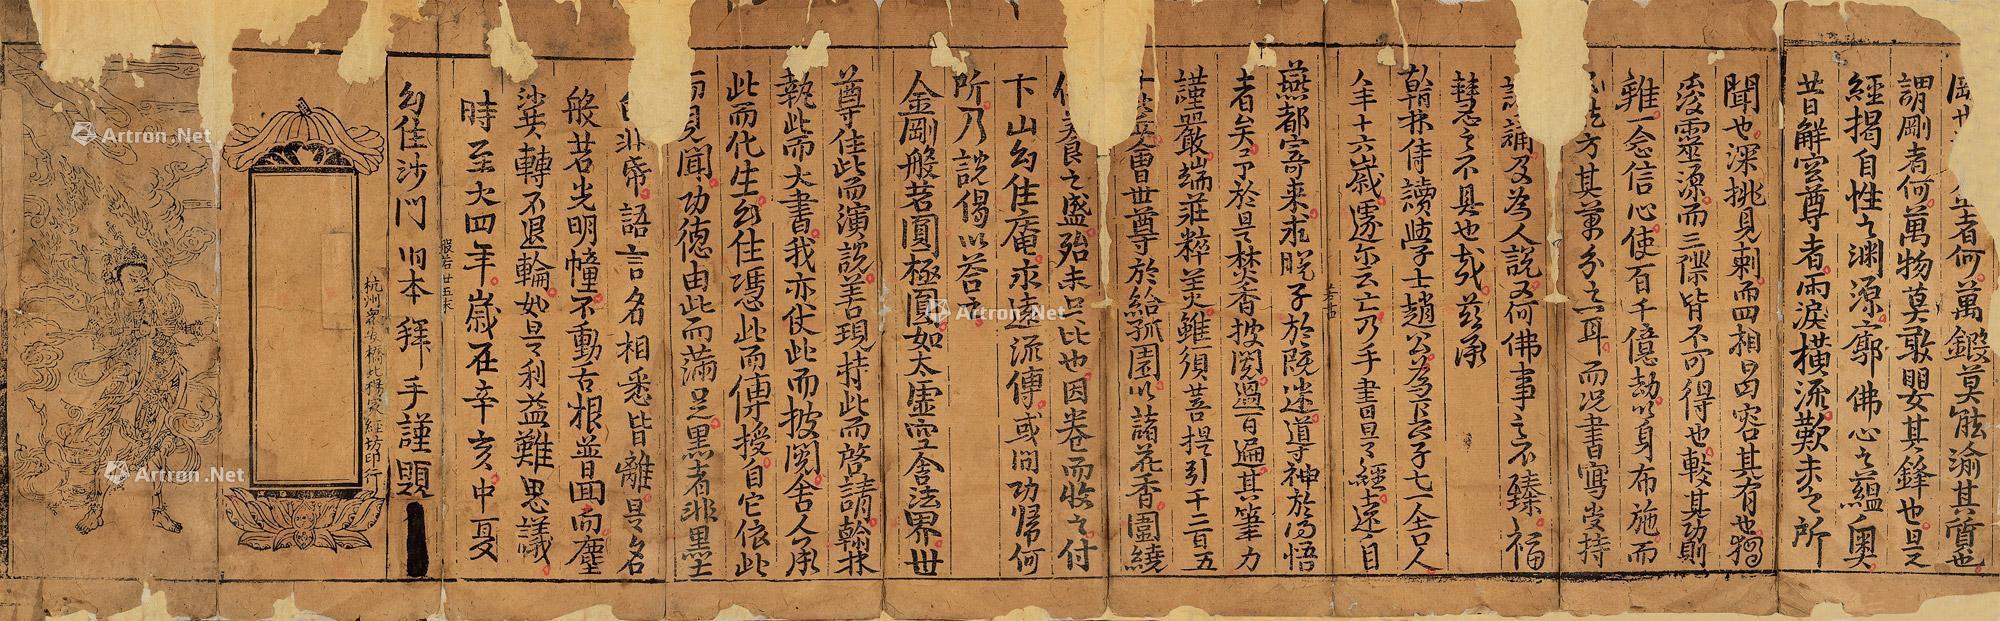 者何萬鍛莫能渝其質也
謂剛者何萬物莫敢嬰其鋒也是
經揭自性之渊源廓佛心之蘊奥
昔解空尊者雨淚橫流歎未之所
聞也深挑見刺而四相曷容其有也獨
露靈源而三際皆不可得也較其功則
雖一念信心使百千億劫以身布施而
方其萬分之一耳而况書寫受持
讀誦及為人說又何佛事之不臻福
慧之不具也哉兹承
翰林侍讀學士趙公為下火子七一舍人
年十六歲遽尔云亡乃手書是經遠自
燕都寄来求脱子於院迷導神於陽悟
者矣予於是焚香披閱過百遍其筆力
謹嚴端莊粹美雖須菩提引千二百五
十衆會世尊於給孤園以諸花香圍繞
供養之盛殆未足比也因卷而收之付
下山幻住庵永遠流傳或問功歸何
所乃說偈以荅之
金剛般若圓極圓如太虛空含法界世
尊住此而演說善現持此而啓請翰林
執此而大書我亦仗此而披閱舍人承
此而化生幻住憑此而傳授自它依此
而見聞功德由此而滿足黑者非黑土
白非帋語言名相悉皆離是名
般若光明幢不動舌根並普囬而塵
沙共轉不退輪如是利益難思議
時至大四年歲在辛亥中夏
般若廿五末
幻住沙門旧本拜手謹題
杭州衆安橋北楊家經坊印行
Artron.Net
Artron.Net
Artron.Net
Artron.Net
Artron.Net
Artron.Net